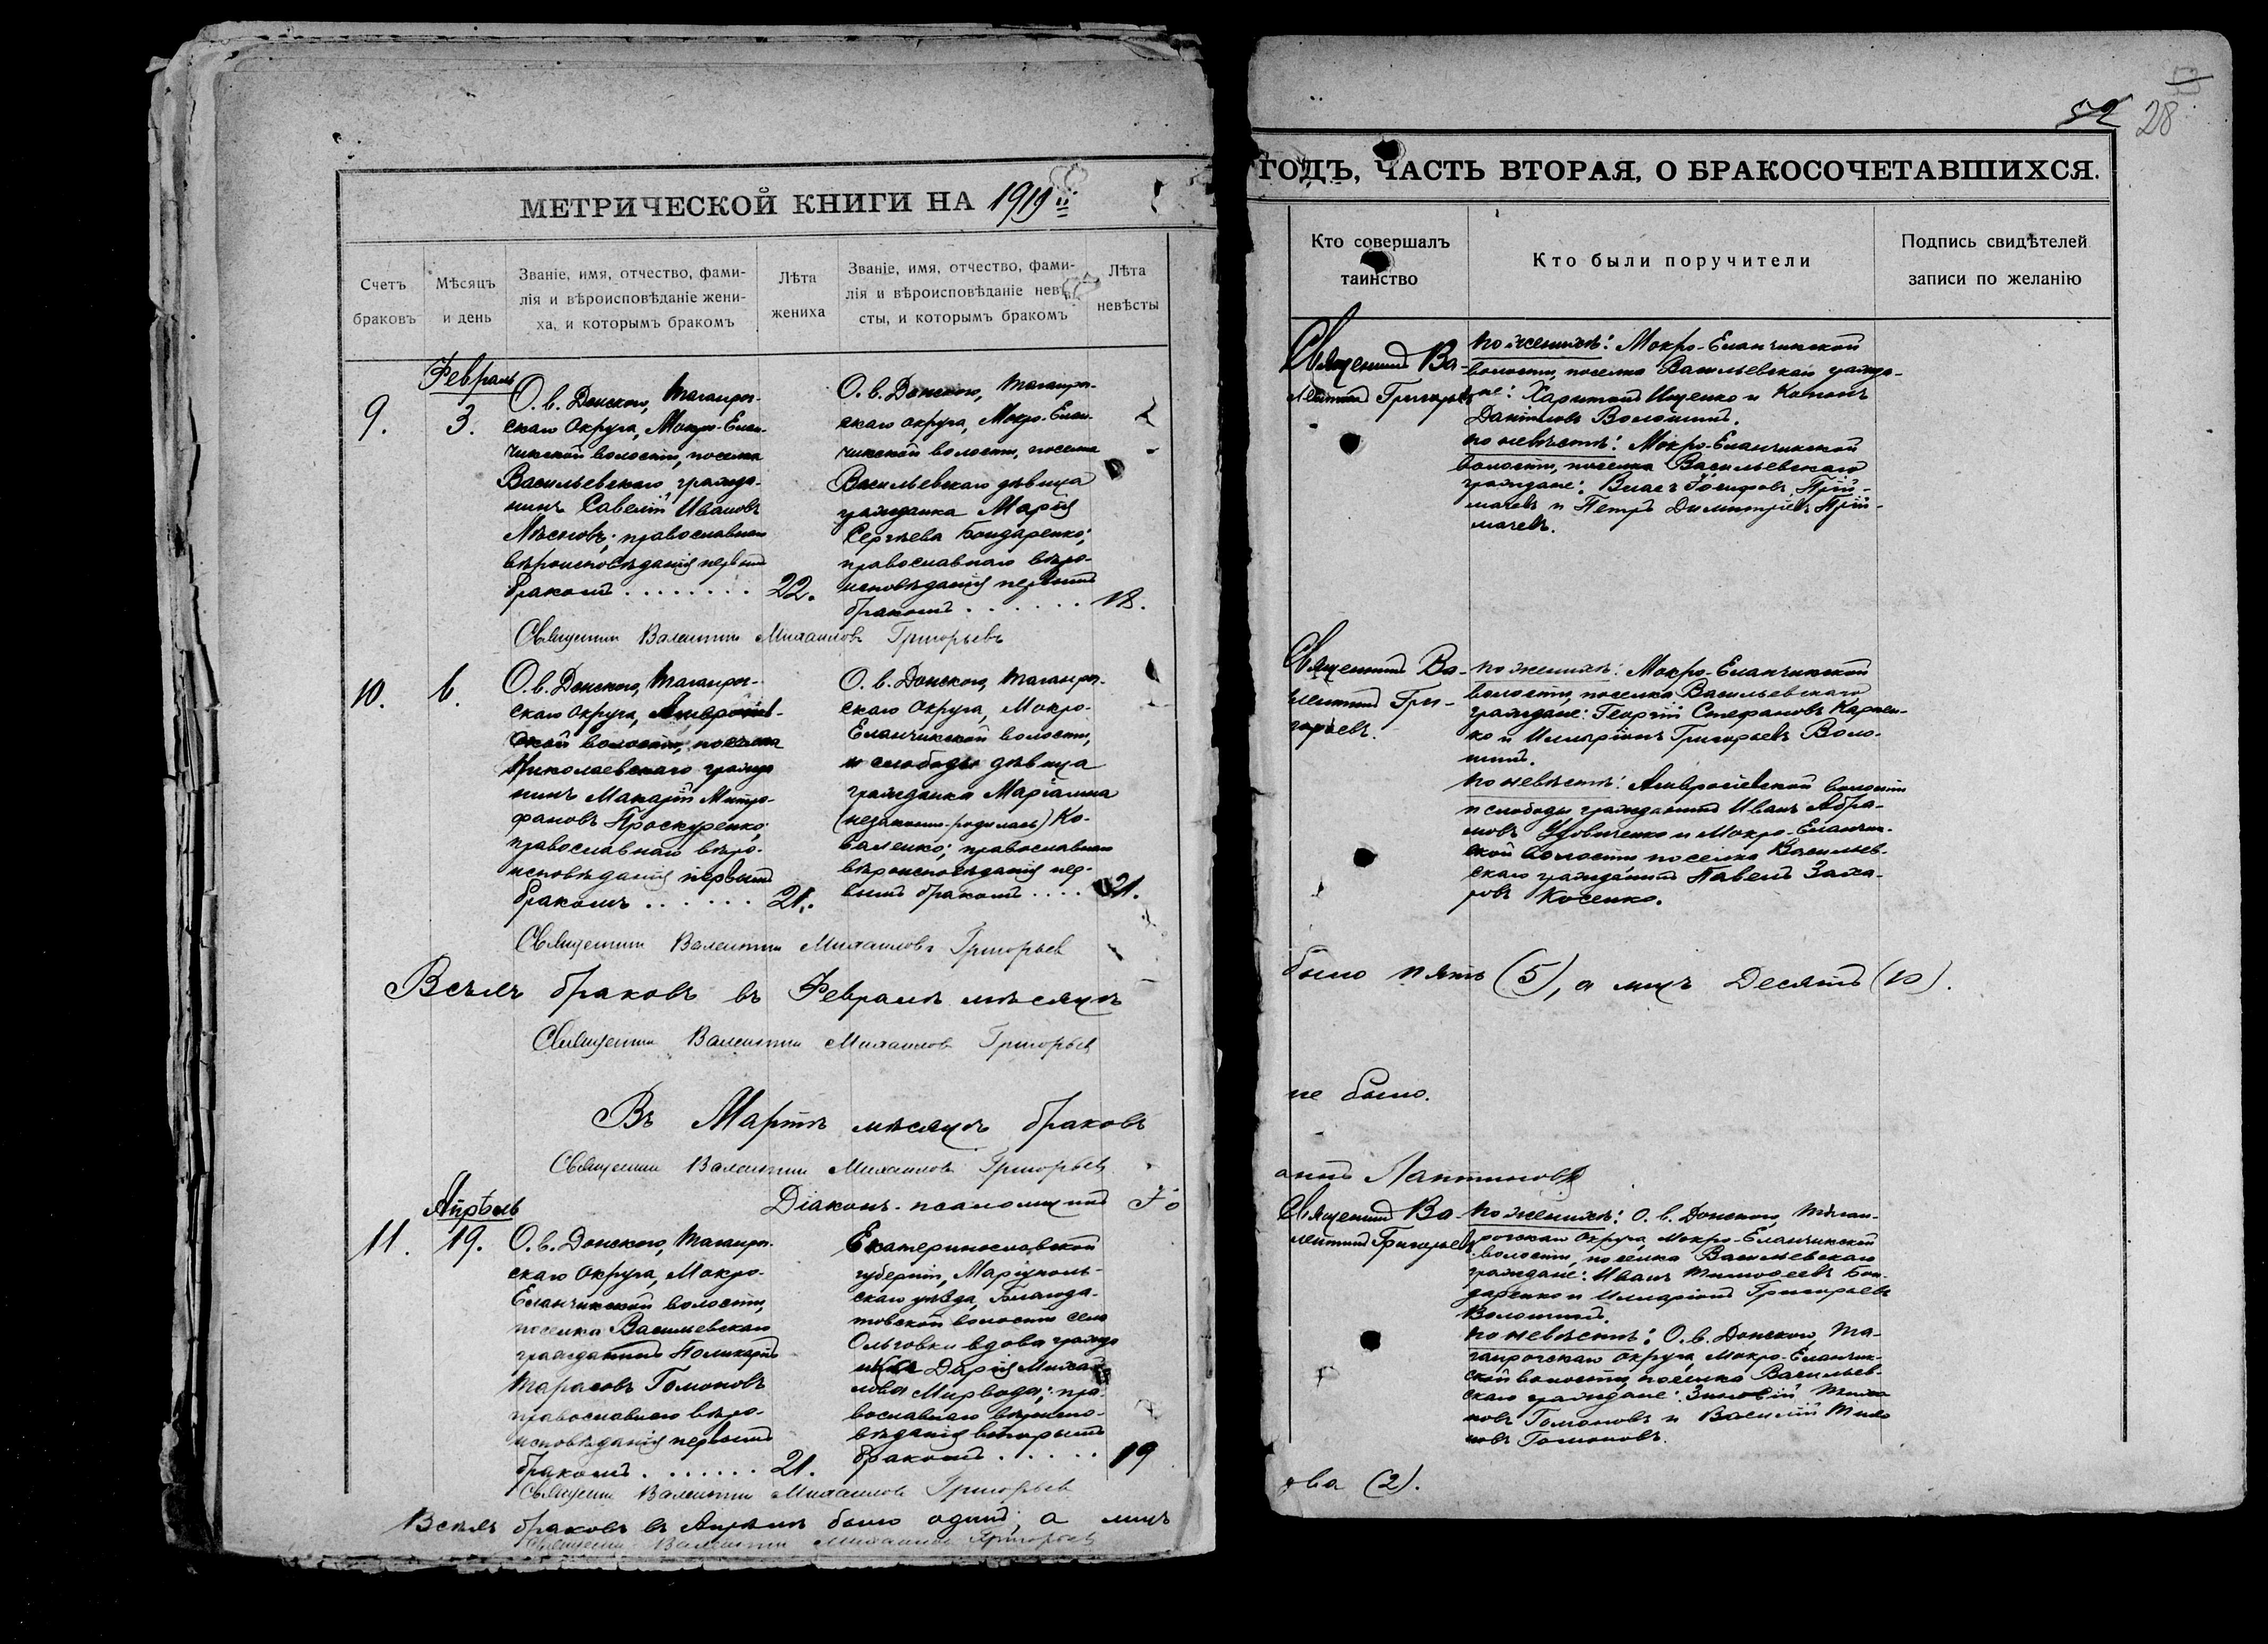 52 28
МЕТРИЧЕСКОЙ КНИГИ НА 1919
ГОДЪ, ЧАСТЬ ВТОРАЯ, О БРАКОСОЧЕТАВШИХСЯ.
Счетъ
браковъ
Мѣсяцъ
и день
Званіе, имя, отчество, фами-
лія и вѣроисповѣданіе жени-
ха, и которымъ бракомъ
Лѣта
жениха
Званіе, имя, отчество, фами-
лія и вѣроисповѣданіе невѣ-
сты, и которымъ бракомъ
Лѣта
невѣсты
Кто совершалъ
таинство
Кто были поручители
Подпись свидѣтелей
записи по желанію
Февраль
9.
3.
О. в. Донского, Таганрог-
скаго Округа, Мокро-Елан-
чикской волости, поселка
Васильевскаго гражда-
нинъ Савелій Ивановъ
православнаго
вѣроисповѣданія первымъ
бракомъ . . . . . . . .
22.
О. в. Донского, Таганрог-
скаго округа, Мокро-Елан-
чикской волости, поселка
Васильевскаго дѣвица
гражданка Марія
Сергѣева Бондаренко;
православнаго вѣро-
исповѣданія первымъ
бракомъ . . . . . .
18.
Священникъ Ва-
лентинъ Григорьевъ
По женихѣ: Мокро-Еланчикской
волости, поселка Васильевскаго гражда-
не: Харитонъ Ищенко и
Даніиловъ Волошинъ.
по невѣстѣ: Мокро-Еланчикской
волости, поселка Васильевскаго
граждане: Власъ Іосифовъ Прій-
мачевъ и Петръ Димитріевъ Прій-
мачевъ.
Священникъ Валентинъ Михаиловъ Григорьевъ
10.
6.
О. в. Донского, Таганрог-
скаго округа, Амвросіев-
ской волости, поселка
Николаевскаго гражда
нинъ Макарій Митро-
фановъ Проскуренко;
православнаго вѣро-
исповѣданія первымъ
бракомъ . . . . . .
21.
О. в. Донского, Таганрог-
скаго Округа, Мокро-
Еланчикской волости,
и слободы дѣвица
гражданка Маріамна
(незаконно-родилась) Ко-
валенко; православнаго
вѣроисповѣданія пер-
вымъ бракомъ . . . .
21.
Священникъ Ва-
лентинъ Гри-
горьевъ.
по женихѣ: Мокро-Еланчикской
волости, поселка Васильевскаго
граждане: Георгій Стефановъ Карпен-
ко и Илларіонъ Григорьевъ Воло-
шинъ.
по невѣстѣ: Амвросіевской волости
и слободы гражданинъ Иванъ Абра-
мовъ Удовиченко и Мокро-Еланчик-
ской волости поселка Васильев-
скаго гражданинъ Павелъ Заха-
ровъ Косенко.
Священникъ Валентинъ Михаиловъ Григорьевъ
Всѣхъ браковъ въ Февралѣ мѣсяцѣ
было пять (5), а лицъ Десять (10).
Священникъ Валентинъ Михаиловъ Григорьевъ
Въ Мартѣ мѣсяцѣ браковъ
не было.
Священникъ Валентинъ Михаиловъ Григорьевъ
Діаконъ-псаломщикъ Іо
аннъ
Апрѣль
11.
19.
О. в. Донского, Таганрог-
скаго Округа, Мокро-
Еланчикской волости,
поселка Васильевскаго
гражданинъ Поликарпъ
Тарасовъ Гомоновъ
православнаго вѣро-
исповѣданія первымъ
бракомъ . . . . . . .
21.
Екатеринославской
губерніи, Маріуполь-
скаго уѣзда, Благода-
товской волости села
Ольговки вдова гражда
нка Дарія Михаи
лова Мирвода; пра-
вославнаго вѣроиспо-
вѣданія вторымъ
бракомъ . . . . .
19
Священникъ Ва-
лентинъ Григорьевъ
По женихѣ: О. в. Донского, Таган-
рогскаго Округа, Мокро-Еланчикской
волости, поселка Васильевскаго
граждане: Иванъ Тимофеевъ Бон-
даренко и Илларіонъ Григорьевъ
Волошинъ.
по невѣстѣ: О. в. Донского, Та-
ганрогскаго округа, Мокро-Еланчик-
ской волости, поселка Васильев-
скаго граждане: Зиновій
Гомоновъ и Василій
Гомоновъ.
Священникъ Валентинъ Михаиловъ Григорьевъ
Всѣхъ браковъ въ Апрѣлѣ было одинъ, а лицъ
два (2).
Священникъ Валентинъ Михаиловъ Григорьевъ